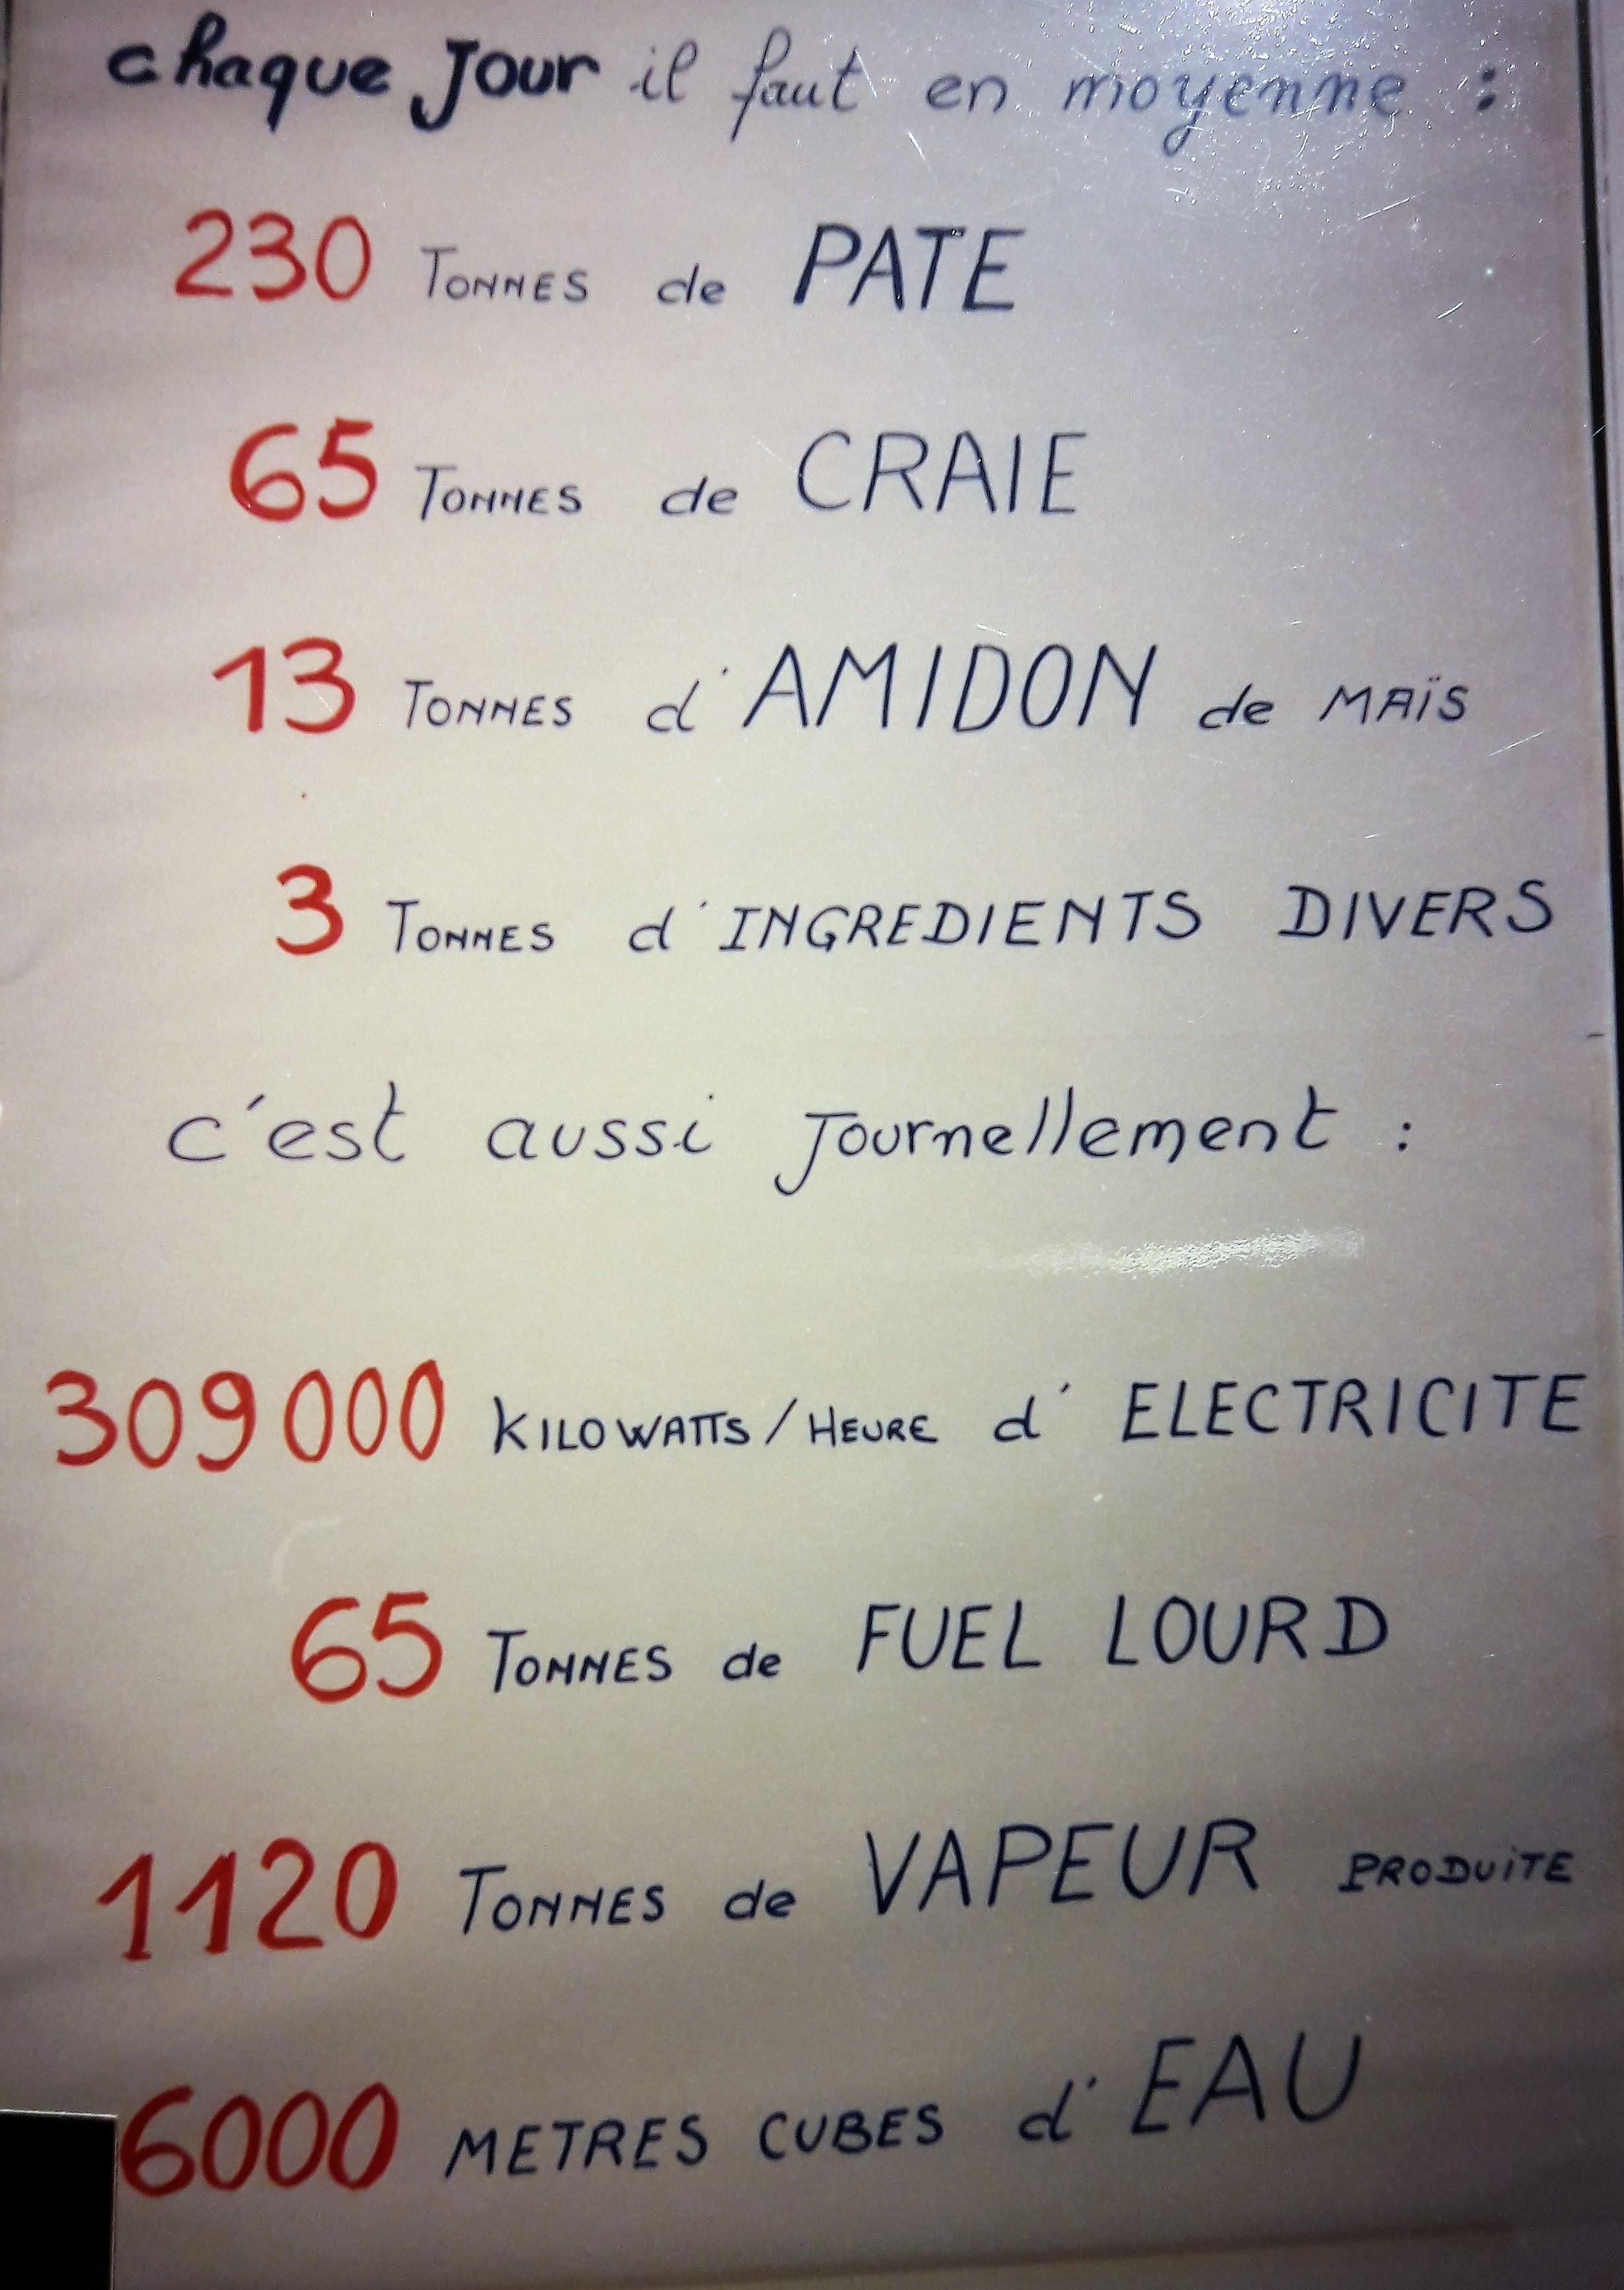 chaque Jour il faut en moyenne :
230 TONNES de PATE
65 TONNES de CRAIE
13 TONNES d'AMIDON de MAÏS
3 TONNES d'INGREDIENTS DIVERS
c'est aussi Journellement :
309000 KILOWATTS/HEURE d'ELECTRICITE
65 TONNES de FUEL LOURD
1120 TONNES de VAPEUR PRODUITE
6000 METRES CUBES d'EAU